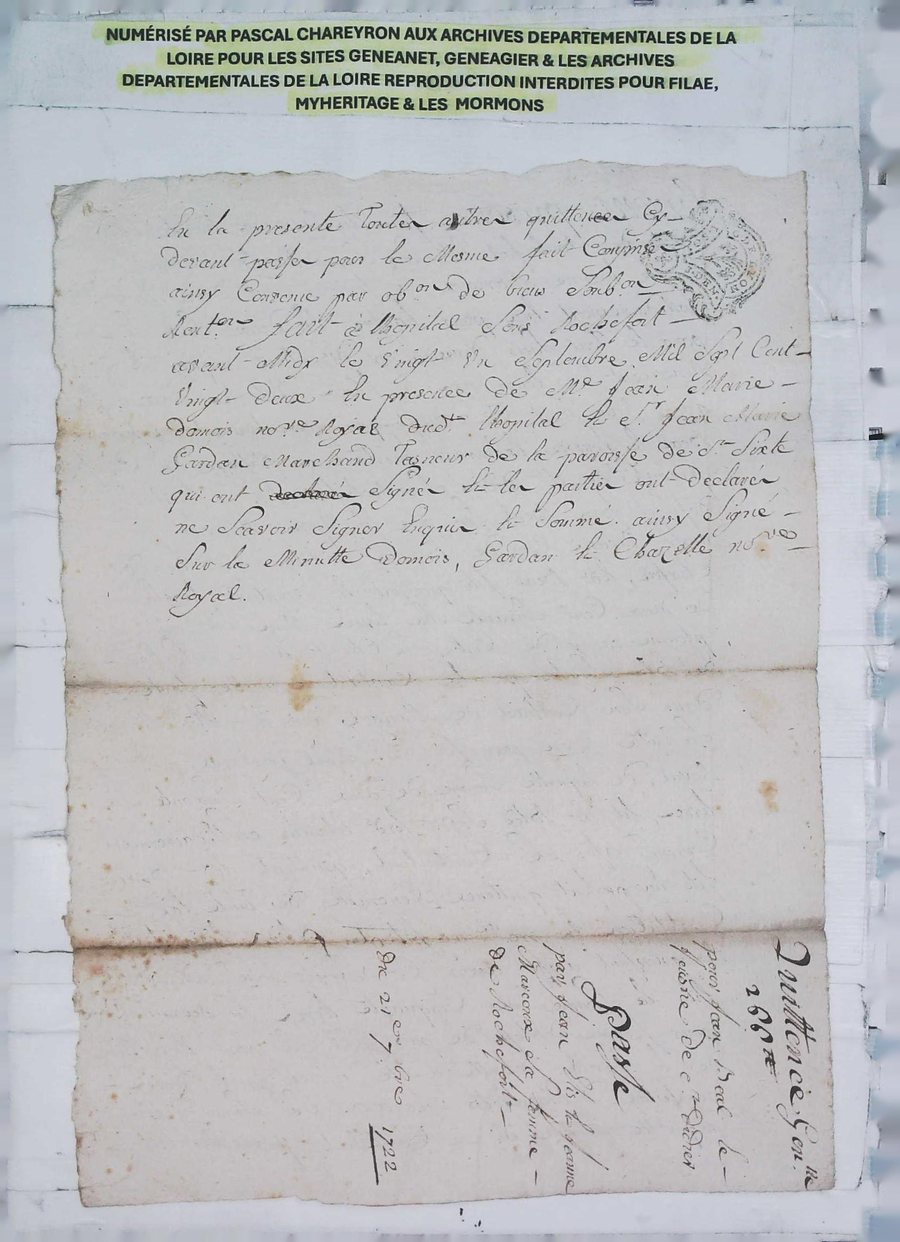 NUMÉRISÉ PAR PASCAL CHAREYRON AUX ARCHIVES DEPARTEMENTALES DE LA
LOIRE POUR LES SITES GENEANET, GENEAGIER & LES ARCHIVES
DEPARTEMENTALES DE LA LOIRE REPRODUCTION INTERDITES POUR FILAE,
MYHERITAGE & LES MORMONS
En la presente Toutes autres quittences Cy-
devant passé pour le Mesme fait Comprise
ainsy Convenue par ob.on de biens Soub.on
Ren.on fait à lhopital Sous Rochefort
avant Midy le Vingt Un Septembre Mil Sept Cent
Vingt deux En presence de M.e Jean Marie
Domois no.re Royal dud.t lhopital Et S.r Jean Marie
Gardan Marchand Tasneur de la paroisse de S.t Sixte
qui ont Signé Et les parties ont declaré
ne Scavoir Signer Enquis Et Sommé. ainsy Signé
Sur la Minutte Domois, Gardan Et Chazelle no.re
Royal.
Quittence Gen.lle
pour Jean Real le
jeune de
passé
par Jean Et Jeanne
Marcoux sa femme
de Rochefort
Du 21e 7bre 1722